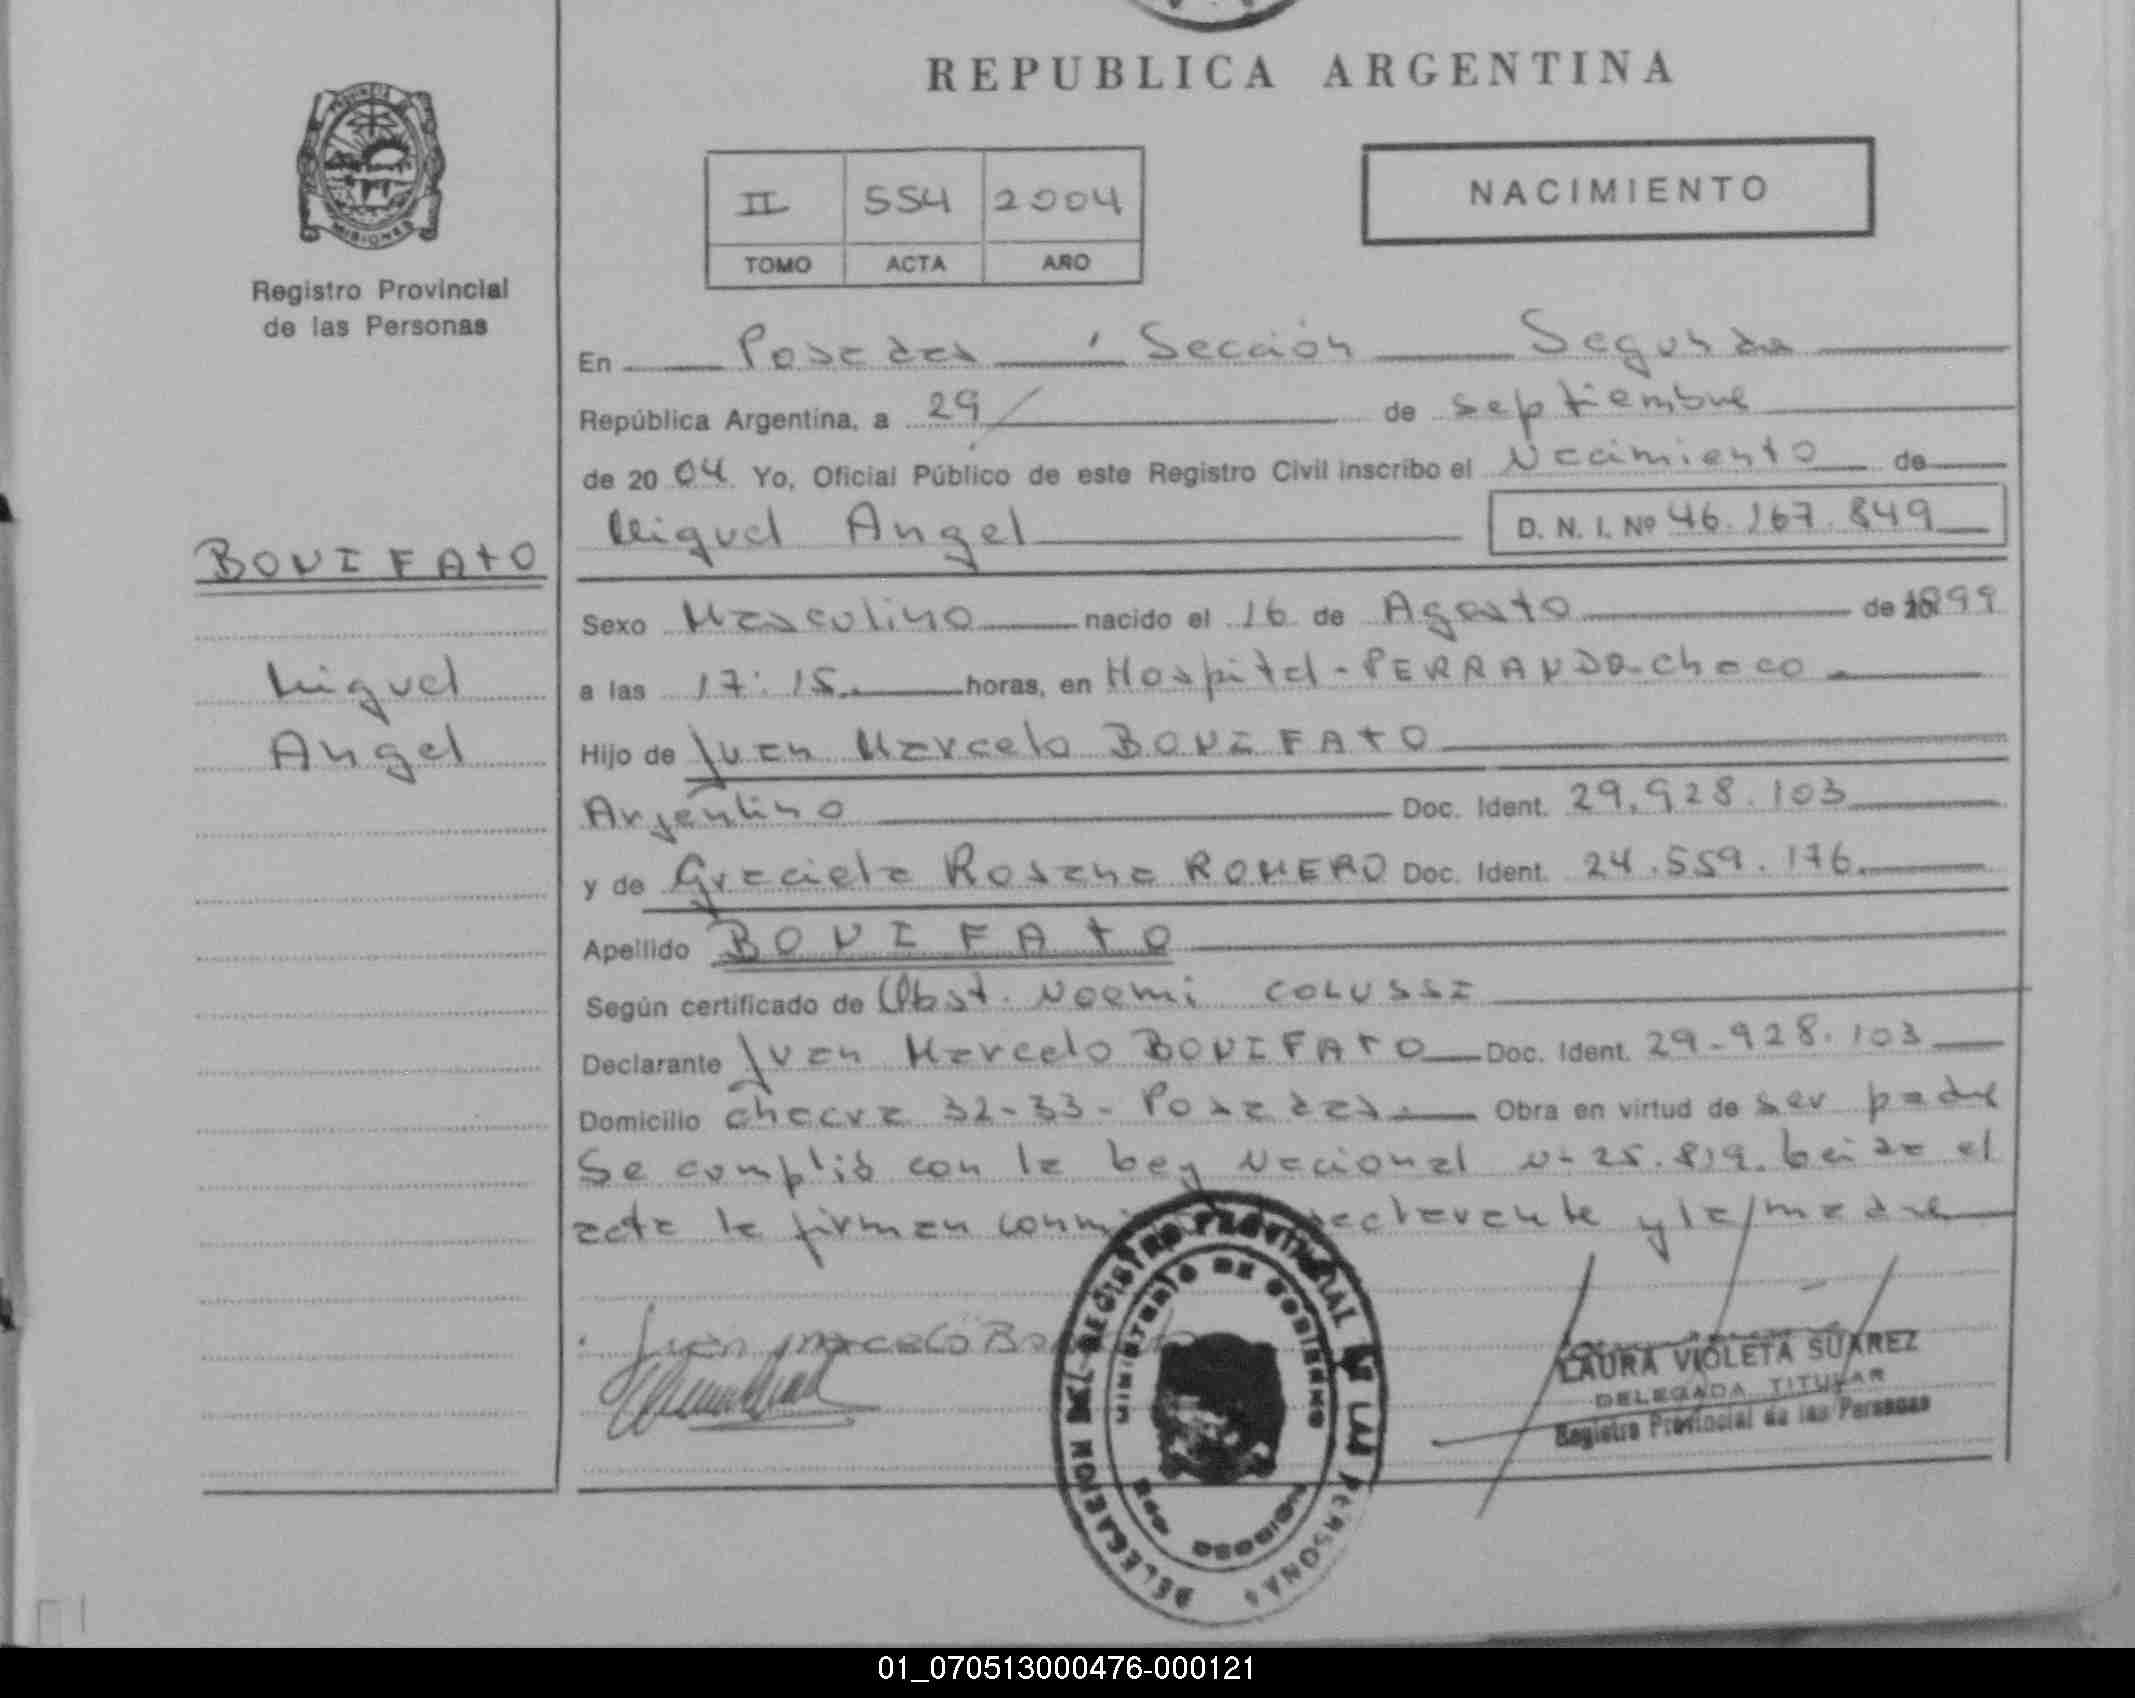 REPUBLICA ARGENTINA
PROVINCIA DE MISIONES
Registro Provincial
de las Personas
II 554 2004
TOMO ACTA AÑO
NACIMIENTO
En Posadas, Sección Segunda
República Argentina, a 29 de septiembre
de 2004 Yo, Oficial Público de este Registro Civil inscribo el Nacimiento de
Miguel Angel D. N. I. Nº 46.167.849
BONIFATO
Miguel
Angel
Sexo Masculino nacido el 16 de Agosto de 1999
a las 17:15 horas, en Hospital-PERRANDO-Chaco
Hijo de Juan Marcelo BONIFATO
Argentino Doc. Ident. 29.928.103
y de Graciela Rosana ROMERO Doc. Ident. 24.559.176
Apellido BONIFATO
Según certificado de Obst. Noemi COLUSSI
Declarante Juan Marcelo BONIFATO Doc. Ident. 29-928.103
Domicilio chacra 32-33- Posadas. Obra en virtud de ser padre
Se cumplió con la Ley Nacional Nº 25.819. Leida el
acta la firman declarante y la madre
Juan marcelo
DELEGACION DEL REGISTRO PROVINCIAL DE LAS PERSONAS
MINISTERIO DE GOBIERNO
LAURA VIOLETA SUAREZ
DELEGADA TITULAR
Registro Provincial de las Personas
01_070513000476-000121